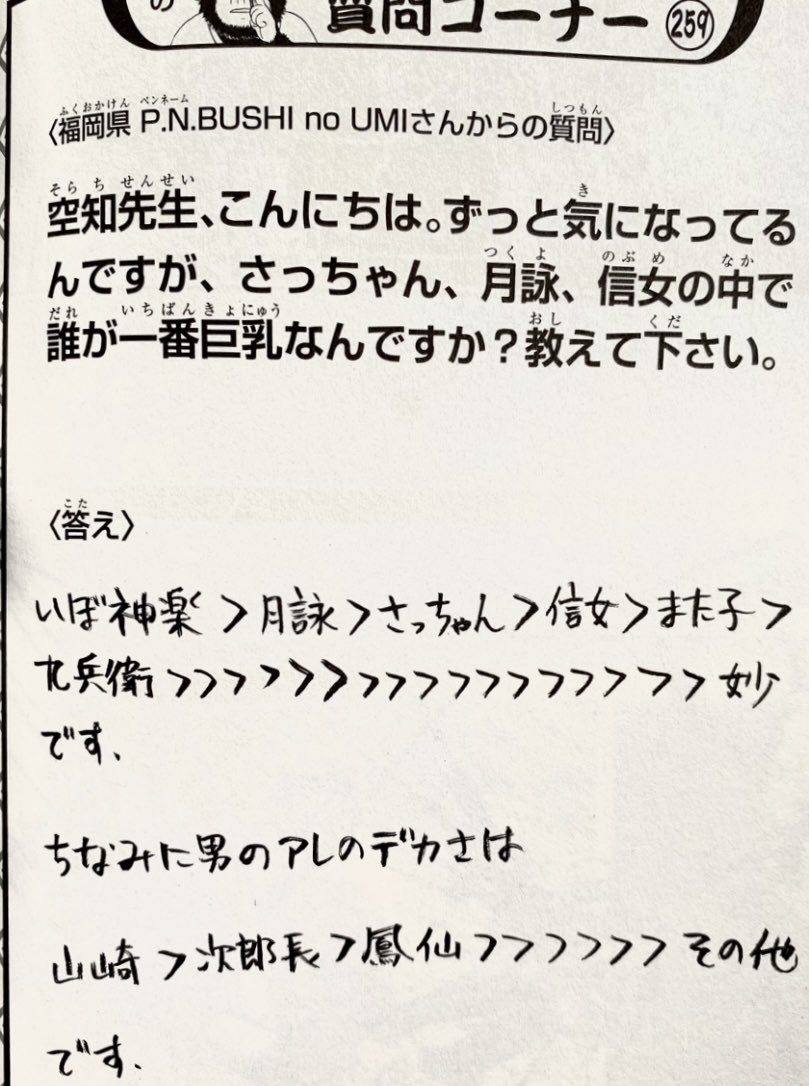 の
質問コーナー 259
〈福岡県 P.N.BUSHI no UMIさんからの質問〉
空知先生、こんにちは。ずっと気になってる
んですが、さっちゃん、月詠、信女の中で
誰が一番巨乳なんですか？教えて下さい。
〈答え〉
いぼ神楽＞月詠＞さっちゃん＞信女＞また子＞
九兵衛＞＞＞＞＞＞＞＞＞＞＞＞＞＞＞＞＞＞＞妙
です、
ちなみに男のアレのデカさは
山崎＞次郎長＞鳳仙＞＞＞＞＞＞＞その他
です.